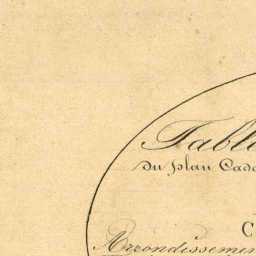 Tabl
du plan Cad
C
Arrondissemen